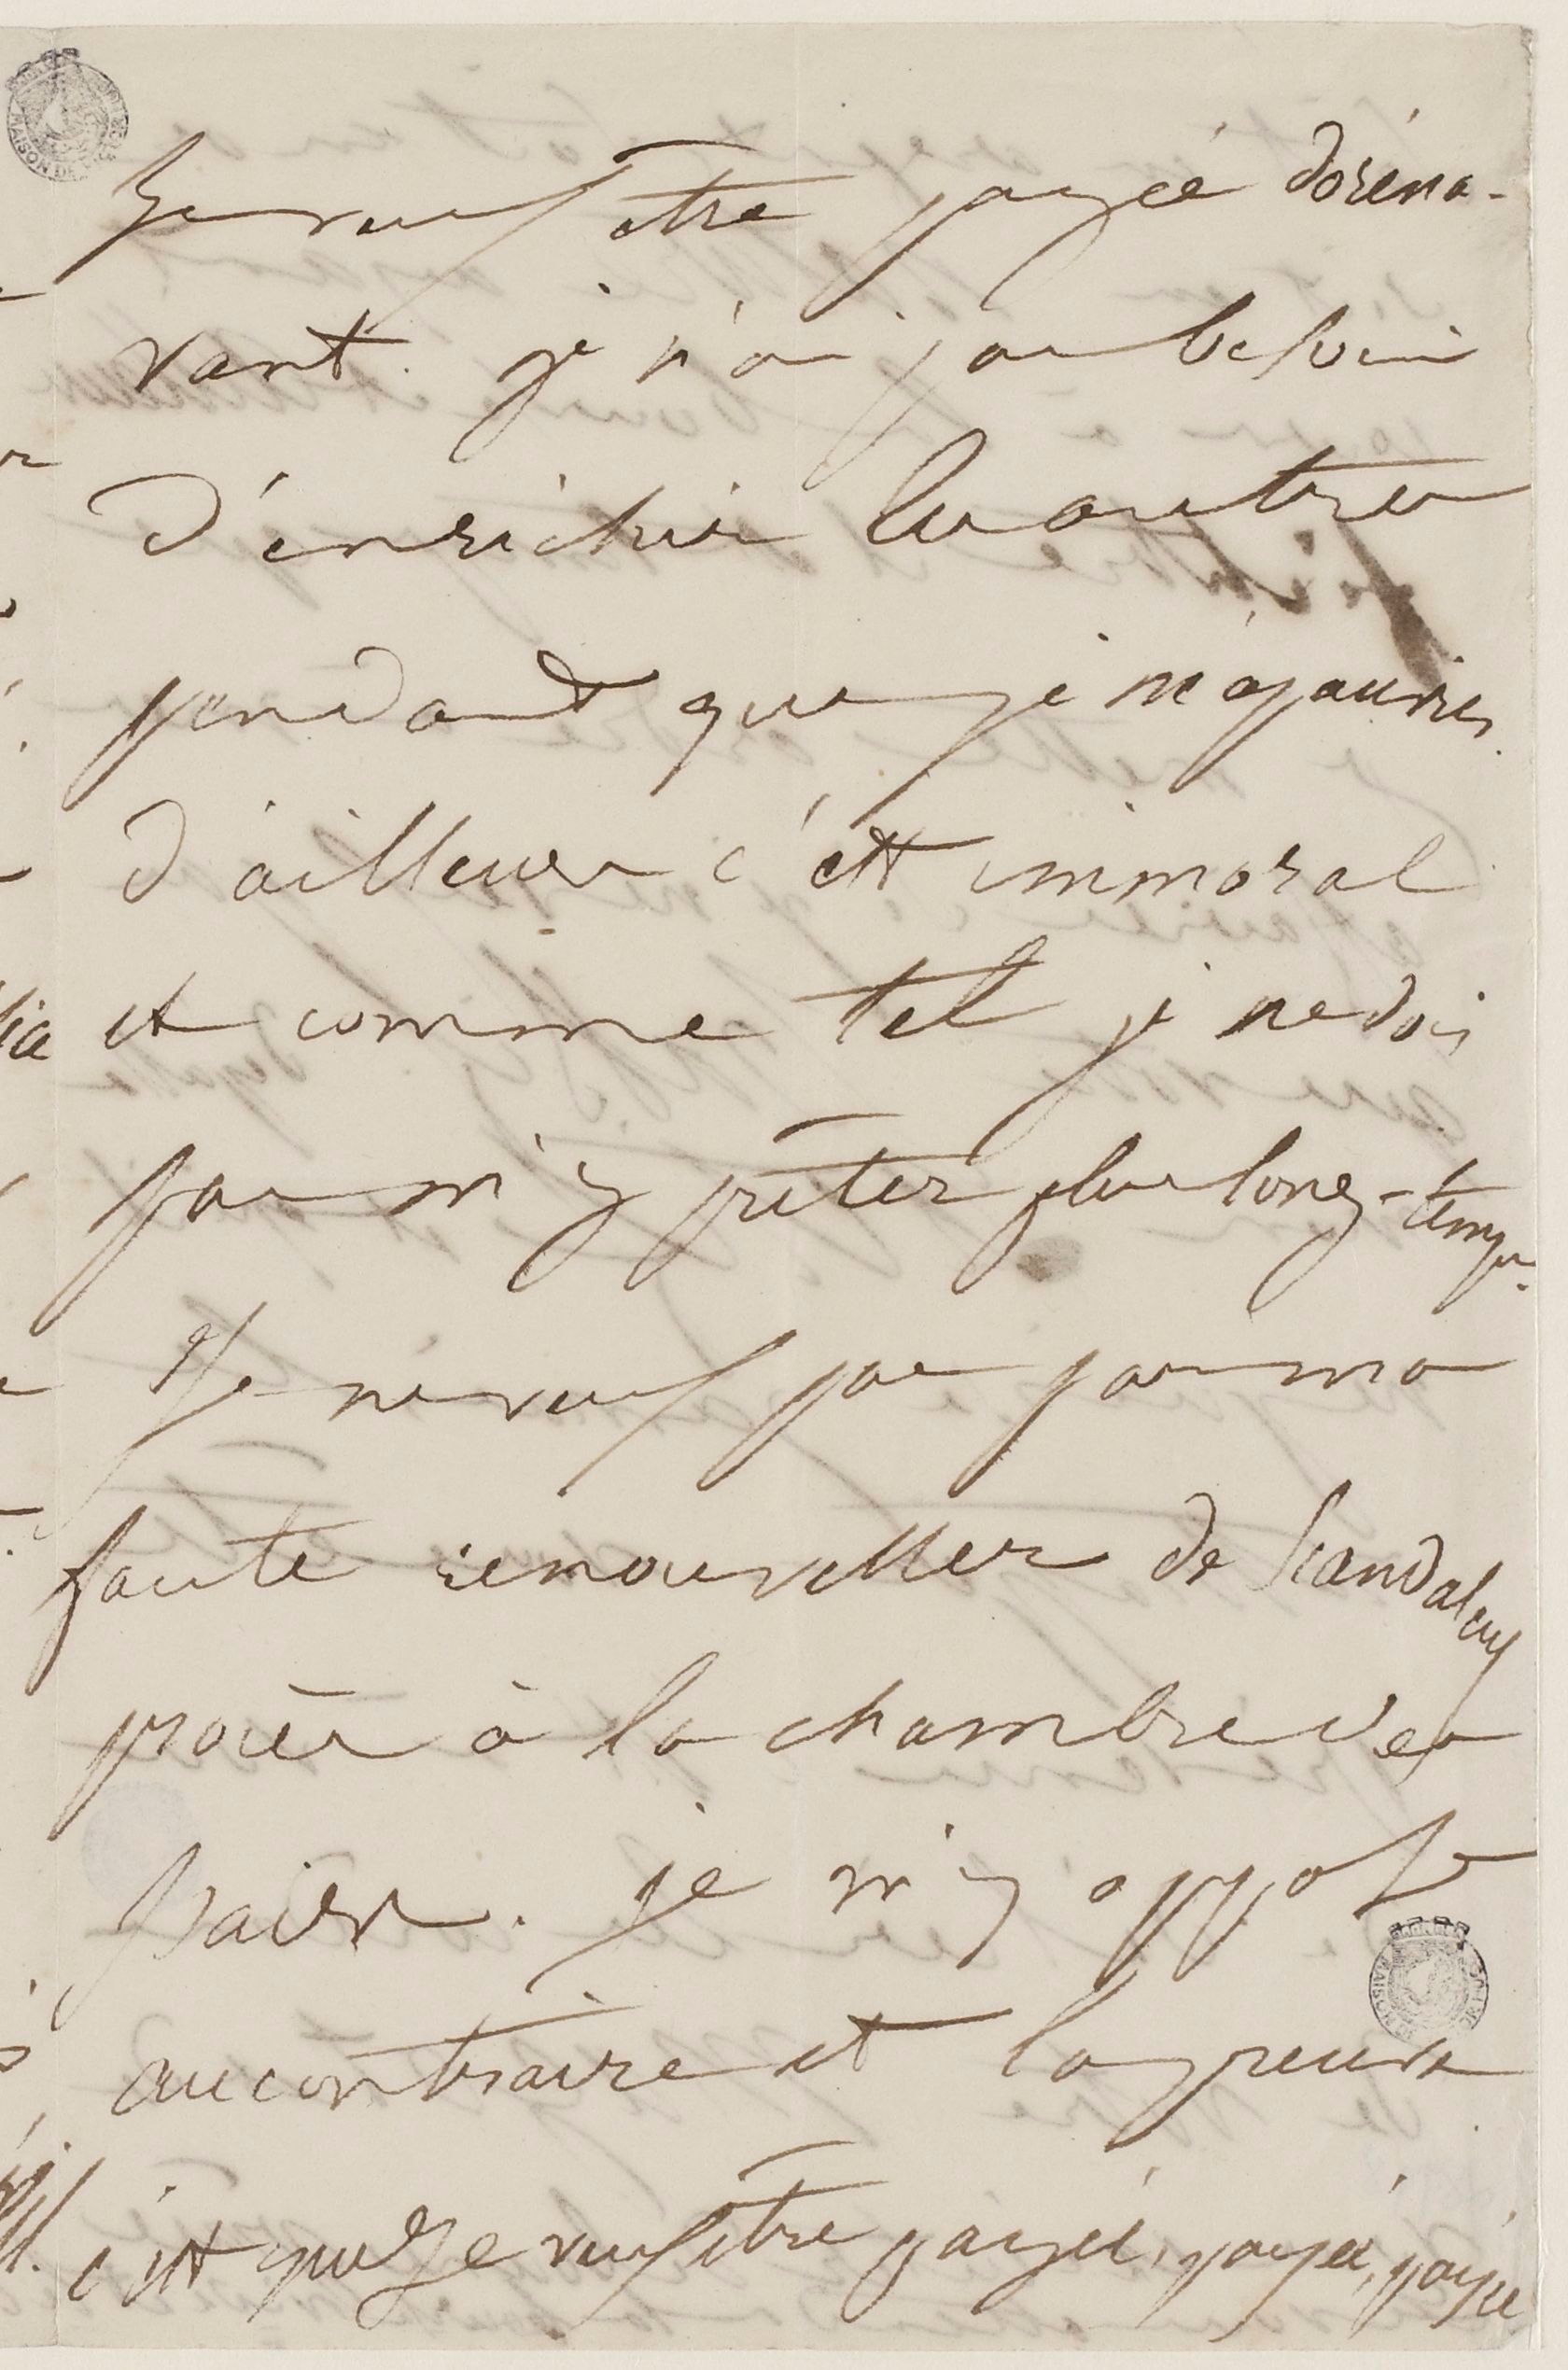 Je veux être payée doréna-
vant. je n'ai pas besoin
d'enrichir les autres
pendant que je m'apauvris.
d'ailleurs c'est immoral
et comme tel je ne dois
pas m'y prêter plus long-temps.
Je ne veux pas par ma
faute renouveller de scandaleux
procès à la chambre des
pairs. Je m'y oppose
au contraire et la preuve
c'est que Je veux être payée, payée, payée